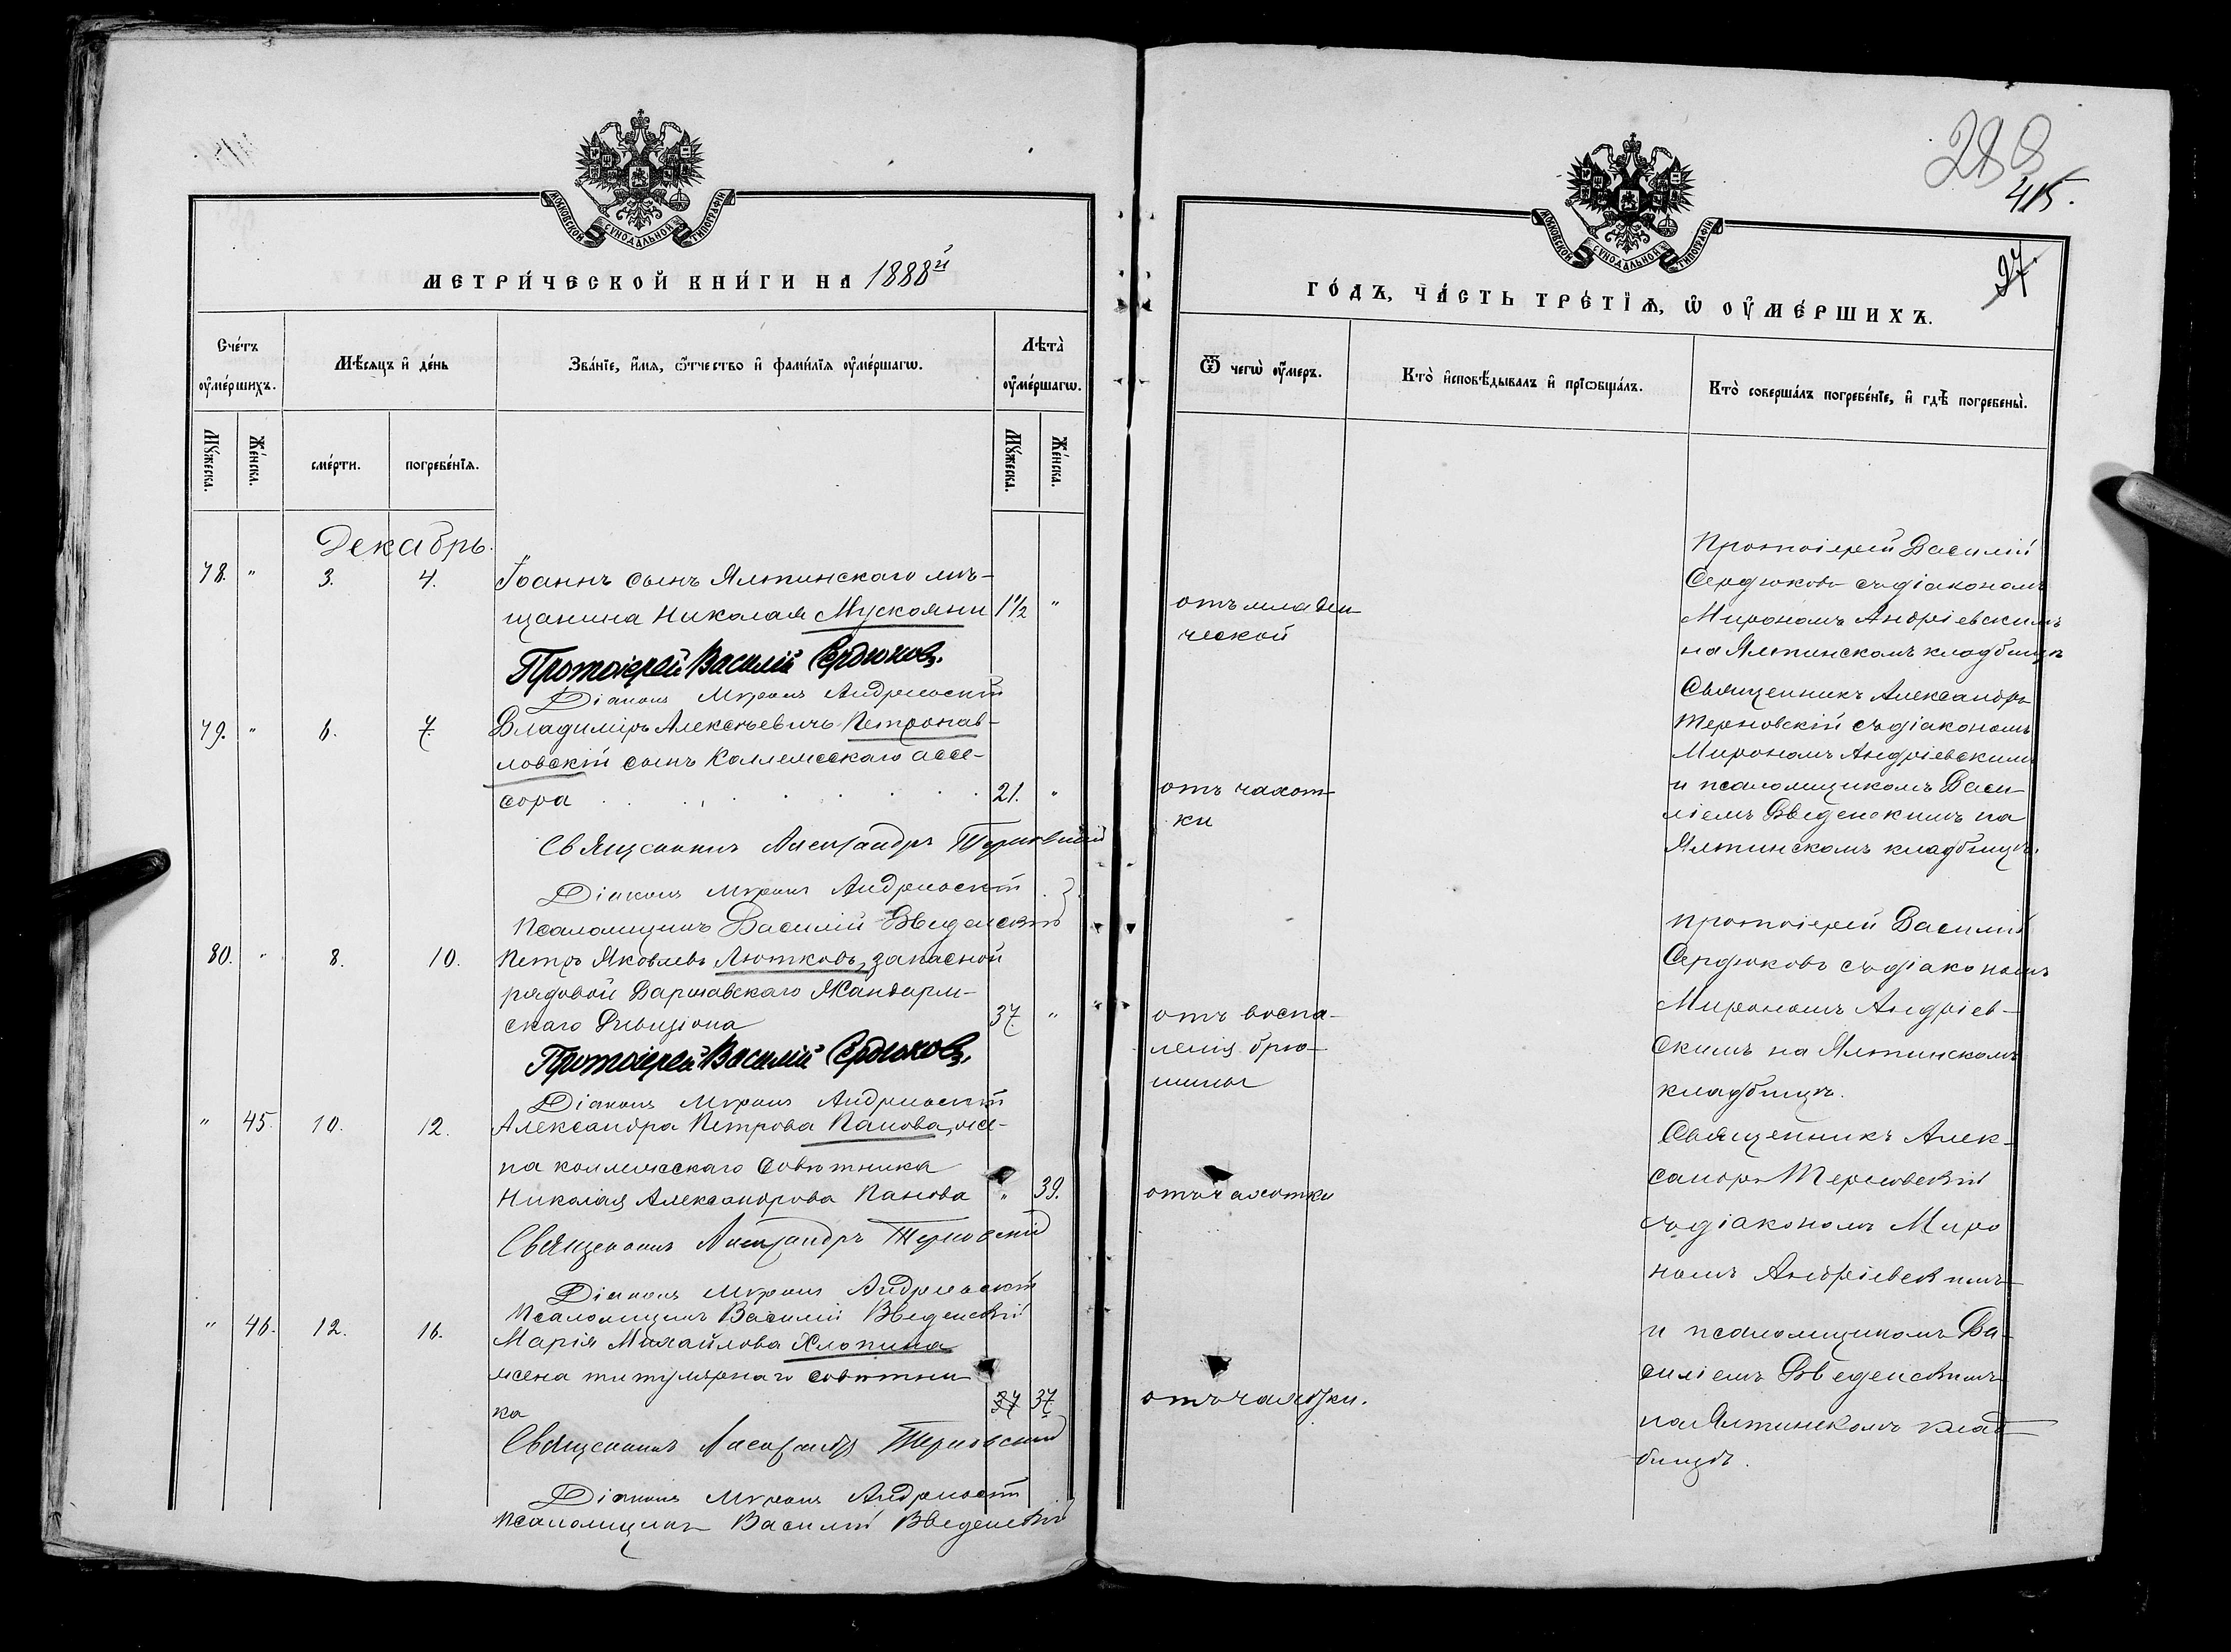 МОСКОВСКОЙ СѴНОДАЛЬНОЙ ТИПОГРАФІИ
МЕТРИ́ЧЕСКОЙ КНИ́ГИ НА 1888й
Сче́тъ ᲂу҆ме́ршихъ.
Мѣ́сяцъ и҆ де́нь
Зва́нїе, и҆́мѧ, ѻ҆́тчество и҆ фами́лїѧ ᲂу҆ме́ршагѡ.
Лѣта̀ ᲂу҆ме́ршагѡ.
Мꙋ́жеска.
Же́нска.
сме́рти.
погребе́нїѧ.
Мꙋ́жеска.
Же́нска.
Декабрь.
78. " 3. 4. Іоаннъ сынъ Ялтинскаго мѣ-
щанина Николая Мускояни 1½ "
Протоіерей Василій Сердюковъ.
Діаконъ Миронъ Андріевскій
79. " 6. 7. Владиміръ Алексѣевичъ Петропав-
ловскій сынъ Коллежскаго ассе-
сора 21. "
Священникъ Александръ Терновскій
Діаконъ Миронъ Андріевскій
Псаломщикъ Василій Введенскій
80. " 8. 10. Петръ Яковлевъ Лютковъ, запасной
рядовой Варшавскаго Жандарм-
скаго Дивизіона 37. "
Протоіерей Василій Сердюковъ.
Діаконъ Миронъ Андріевскій
" 45. 10. 12. Александра Петрова Панова, же-
на коллежскаго Совѣтника
Николая Александрова Панова " 39.
Священникъ Александръ Терновскій
Діаконъ Миронъ Андріевскій
Псаломщикъ Василій Введенскій
" 46. 12. 16. Марія Михайлова Хлопина
жена титулярнаго совѣтни
ка 37 37
Священникъ Александръ Терновскій
Діаконъ Миронъ Андріевскій
Псаломщикъ Василій Введенскій
288
415.
27.
МОСКОВСКОЙ СѴНОДАЛЬНОЙ ТИПОГРАФІИ
ГО́ДЪ, ЧА́СТЬ ТРЕ́ТЇѦ, Ѡ҆ ОУ҆МЕ́РШИХЪ.
Ѿ чегѡ̀ ᲂу҆́меръ.
Кто̀ и҆сповѣ́дывалъ и҆ прїѡбща́лъ.
Кто̀ соверша́лъ погребе́нїе, и҆ гдѣ̀ погребены̀.
отъ младен
ческой
Протоіерей Василій
Сердюковъ съ діакономъ
Мирономъ Андріевскимъ
на Ялтинскомъ кладбищѣ
отъ чахот-
ки
Священникъ Александръ
Терновскій съ діакономъ
Мирономъ Андріевскимъ
и псаломщикомъ Васи-
ліемъ Введенскимъ на
Ялтинскомъ кладбищѣ.
отъ воспа-
ленія брю-
шины
Протоіерей Василій
Сердюковъ съ діакономъ
Мирономъ Андріев-
скимъ на Ялтинскомъ
кладбищѣ.
отъ чахотки
Священникъ Алек-
сандръ Терновскій
съ діакономъ Миро
номъ Андріевскимъ
отъ чахотки.
и псаломщикомъ Ва-
силіемъ Введенскимъ
на Ялтинскомъ клад
бищѣ.